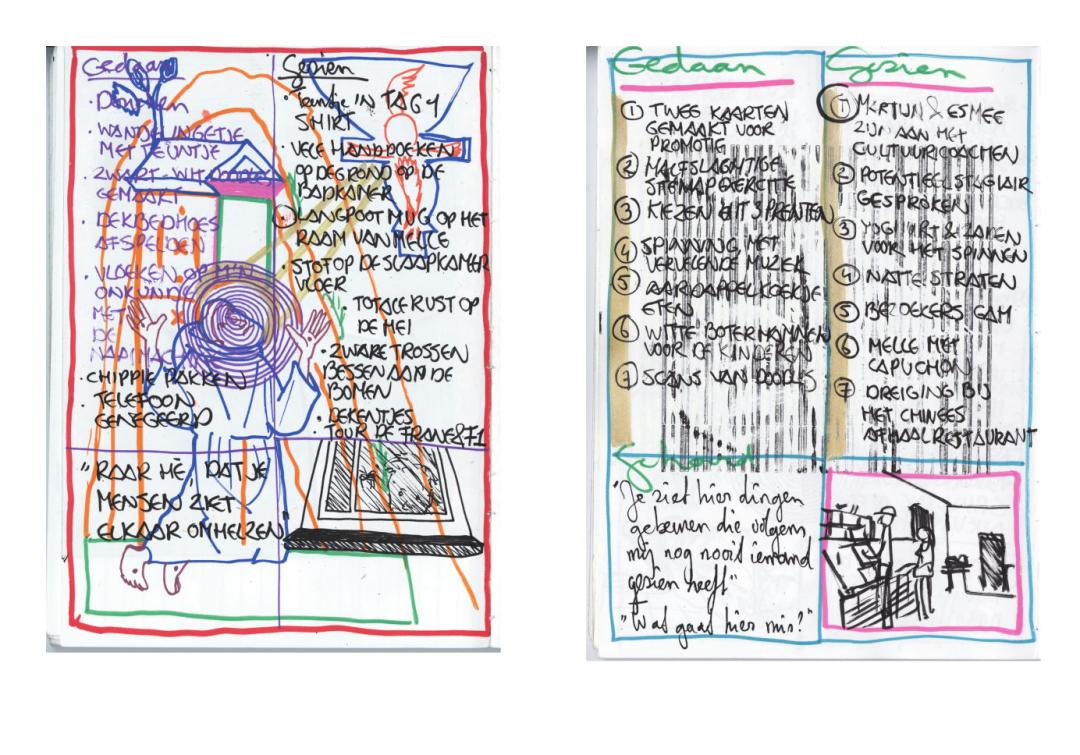 Gedaan
· Douchen
· WANDELINGETJE
MET TEUNTJE
· ZWART-WIT DOODLES
GEMAAKT
· DEKBEDHOES
AFSPELDEN
· VLOEKEN OP MIJN
ONKUNDE
MET
DE
· CHIPPIE PAKKEN
· TELEFOON
GENEGEERD
Gezien
· Teuntje IN
SHIRT
· VELE HANDDOEKEN
OP DE GROND OP DE
BADKAMER
· LANGPOOTMUG OP HET
RAAM VAN MELLE
· STOF OP DE SLAAPKAMER
VLOER
· TOTALE RUST OP
DE HEI
· ZWARE TROSSEN
BESSEN AAN DE
BOMEN
· DEKENTJES
TOUR DE
"RAAR HÈ, DAT JE
MENSEN ZIET
ELKAAR OMHELZEN"
Gedaan
① TWEE KAARTEN
GEMAAKT VOOR
PROMOTIE
② HALFSLACHTIGE
③ KIEZEN UIT 3 PRENTEN
④ SPINNING MET
VERVELENDE MUZIEK
⑤ AARDAPPELKOEKJE
ETEN
⑥ WITTE BOTERHAMMEN
VOOR DE KINDEREN
⑦ SCANS VAN DOODLES
Gezien
① MARTIJN & ESMEE
ZIJN AAN HET
CULTUURCOACHEN
② POTENTIEEL STAGIAIR
GESPROKEN
③ YOGHURT & ZADEN
VOOR HET SPINNEN
④ NATTE STRATEN
⑤ BEZOEKERS GAM
⑥ MELLE MET
CAPUCHON
⑦ DREIGING BIJ
HET CHINEES
AFHAALRESTAURANT
Gehoord
"Je ziet hier dingen
gebeuren die volgens
mij nog nooit iemand
gezien heeft"
"Wat gaat hier mis?"